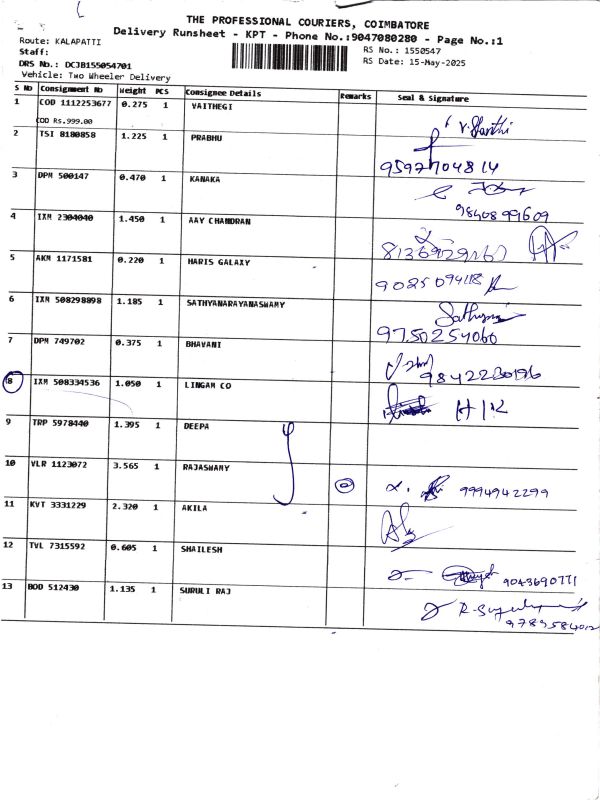 THE PROFESSIONAL COURIERS, COIMBATORE
Delivery Runsheet - KPT - Phone No.:9047080280 - Page No.:1
Route: KALAPATTI
RS No.: 1550547
Staff:
RS Date: 15-May-2025
DRS No.: DCJB155054701
Vehicle: Two Wheeler Delivery
S No Consignment No Weight PCS Consignee Details Remarks Seal & Signature
1 COD 1112253677 0.275 1 VAITHEGI
COD Rs.999.00
2 TSI 8180858 1.225 1 PRABHU
9597704814
3 DPM 500147 0.470 1 KANAKA
9840899609
4 IXM 2304040 1.450 1 AAY CHANDRAN
5 AKM 1171581 0.220 1 HARIS GALAXY
9025094118
6 IXM 508298898 1.185 1 SATHYANARAYANASWAMY
9750254060
7 DPM 749702 0.375 1 BHAVANI
9842230196
8 IXM 508334536 1.050 1 LINGAM CO
9 TRP 5978440 1.395 1 DEEPA
10 VLR 1123072 3.565 1 RAJASWAMY
9994942299
11 KVT 3331229 2.320 1 AKILA
12 TVL 7315592 0.605 1 SHAILESH
9043690771
13 BOD 512430 1.135 1 SURULI RAJ